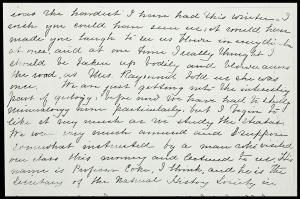 ious the hardest I have had this winter. I
wish you could have seen us, it would have
made you laugh to see us
at once, and at one time I really thought I
should be taken up bodily and blown across
the road, as Mrs. Raymond told us she was
once. We are just getting into the interesting
part of geology. before now we have had to study
mineralogy more particularly, but I hope to
like it very much as we study the
We were very much amused and I suppose
somewhat instructed by a man who visited
our class this morning and lectured to us. His
name is Professor I think, and he is the
Secretary of the Natural History Society in